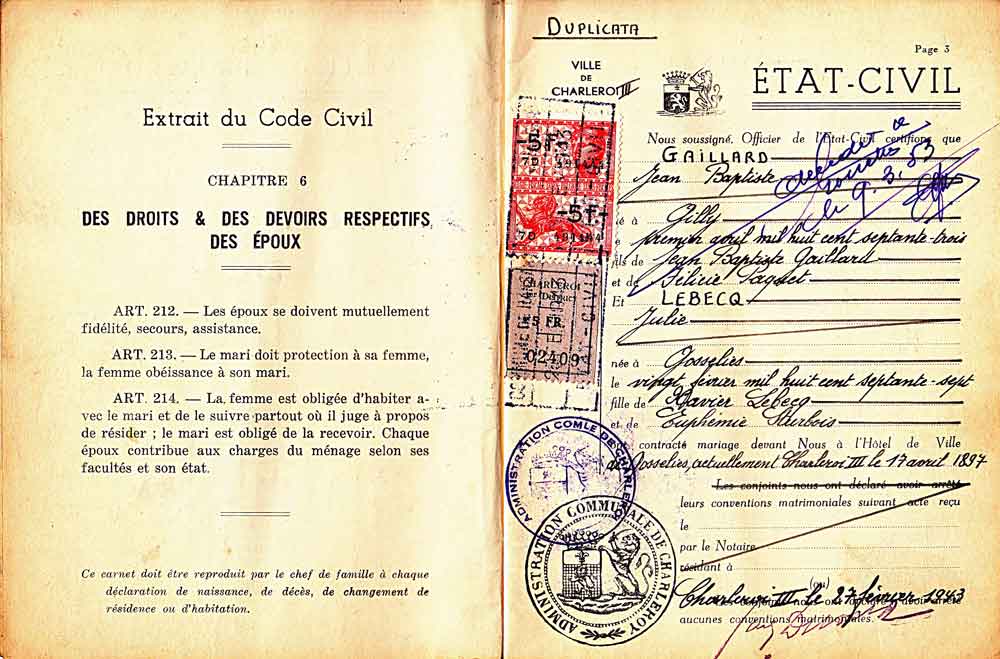 Extrait du Code Civil
CHAPITRE 6
DES DROITS & DES DEVOIRS RESPECTIFS
DES ÉPOUX
ART. 212. — Les époux se doivent mutuellement
fidélité, secours, assistance.
ART. 213. — Le mari doit protection à sa femme,
la femme obéissance à son mari.
ART. 214. — La femme est obligée d'habiter a-
vec le mari et de le suivre partout où il juge à propos
de résider ; le mari est obligé de la recevoir. Chaque
époux contribue aux charges du ménage selon ses
facultés et son état.
Ce carnet doit être reproduit par le chef de famille à chaque
déclaration de naissance, de décès, de changement de
résidence ou d'habitation.
DUPLICATA
Page 3
VILLE
DE
CHARLEROI III
ÉTAT-CIVIL
Nous soussigné, Officier de l'État-Civil certifions que
GAILLARD
Jean Baptiste
décédé
le 9. 3. 53
né à Gilly
le premier avril mil huit cent septante-trois
fils de Jean Baptiste Gaillard
et de Félicie Paquet
Et LEBECQ
Julie
née à Gosselies
le vingt février mil huit cent septante-sept
fille de Xavier Lebecq
et de Euphémie
ont contracté mariage devant Nous à l'Hôtel de Ville
de Gosselies, actuellement Charleroi III le 17 avril 1897
Les conjoints nous ont déclaré avoir arrêté
leurs conventions matrimoniales suivant acte reçu
le
par le Notaire
résidant à
(ou)
Charleroi III le 27 février 1943
aucunes conventions matrimoniales.
-5f-
-5f-
CHARLEROI
5 FR.
02409
ADMINISTRATION COMLE DE CHARLEROI
ADMINISTRATION COMMUNALE DE CHARLEROY